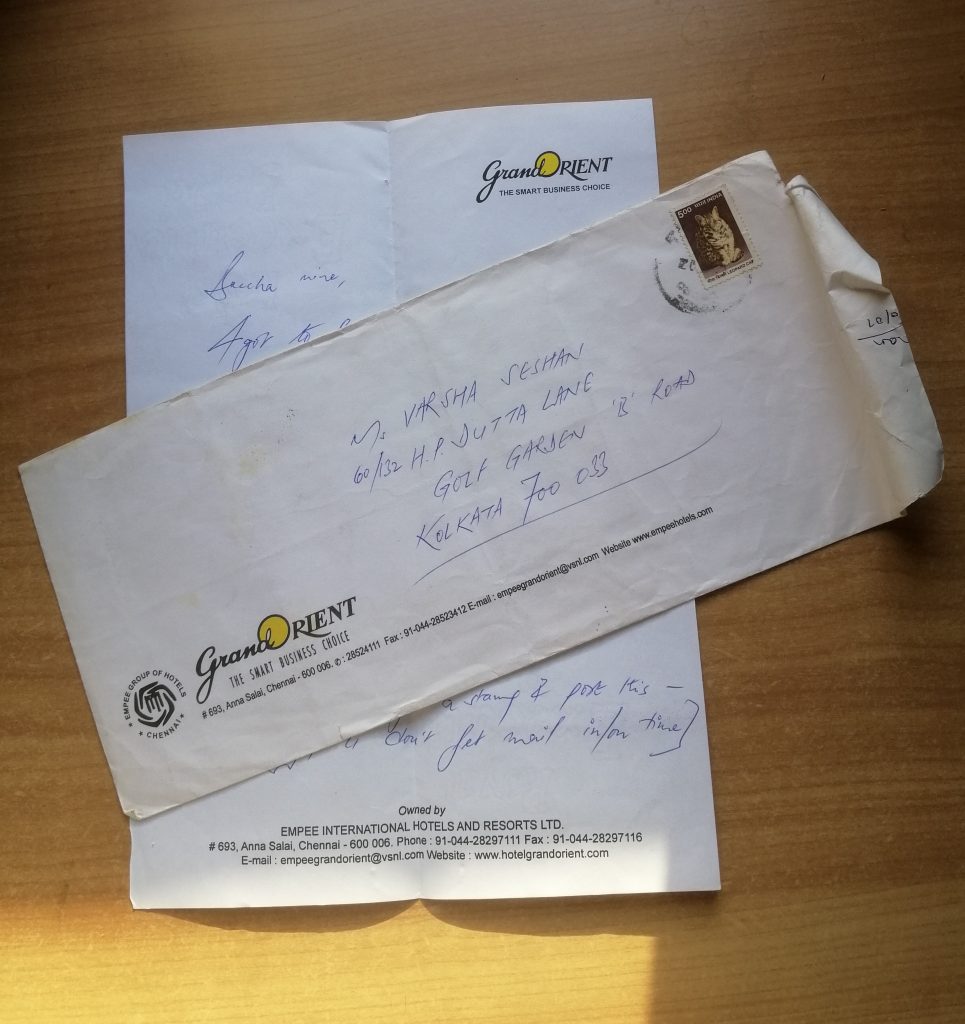 Grand ORIENT
THE SMART BUSINESS CHOICE
Baccha mine,
I got to
500 भारत INDIA
LEOPARD CAT
Ms VARSHA SESHAN
60/132 H.P. DUTTA LANE
GOLF GARDEN 'B' ROAD
KOLKATA 700 033
Grand ORIENT
THE SMART BUSINESS CHOICE
# 693, Anna Salai, Chennai - 600 006. ✆ : 28524111 Fax : 91-044-28523412 E-mail : empeegrandorient@vsnl.com Website www.empeehotels.com
★ EMPEE GROUP OF HOTELS ★ CHENNAI
a stamp & post this –
don't get mail in/on time]
Owned by
EMPEE INTERNATIONAL HOTELS AND RESORTS LTD.
# 693, Anna Salai, Chennai - 600 006. Phone : 91-044-28297111 Fax : 91-044-28297116
E-mail : empeegrandorient@vsnl.com Website : www.hotelgrandorient.com